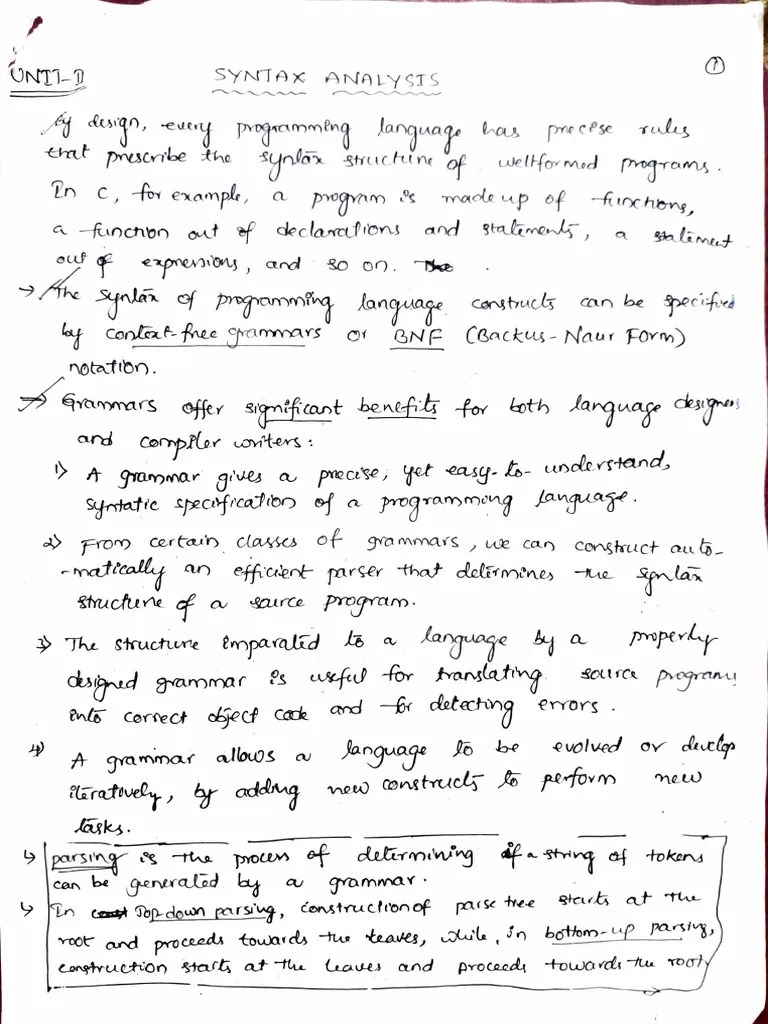 UNIT-II SYNTAX ANALYSIS 1
By design, every programming language has precise rules
that prescribe the syntax structure of wellformed programs.
In C, for example, a program is made up of functions,
a function out of declarations and statements, a statement
out of expressions, and so on.
→ The syntax of programming language constructs can be specified
by context-free grammars or BNF (Backus-Naur Form)
notation.
→ Grammars offer significant benefits for both language designers
and compiler writers:
1) A grammar gives a precise, yet easy-to-understand,
syntatic specification of a programming language.
2) From certain classes of grammars, we can construct auto-
-matically an efficient parser that determines the syntax
structure of a source program.
3) The structure imparated to a language by a properly
designed grammar is useful for translating source programs
into correct object code and for detecting errors.
4) A grammar allows a language to be evolved or develop
iteratively, by adding new constructs to perform new
tasks.
↳ parsing is the process of determining if a string of tokens
can be generated by a grammar.
↳ In Top-down parsing, construction of parse tree starts at the
root and proceeds towards the leaves, while, in bottom-up parsing,
construction starts at the leaves and proceeds towards the root